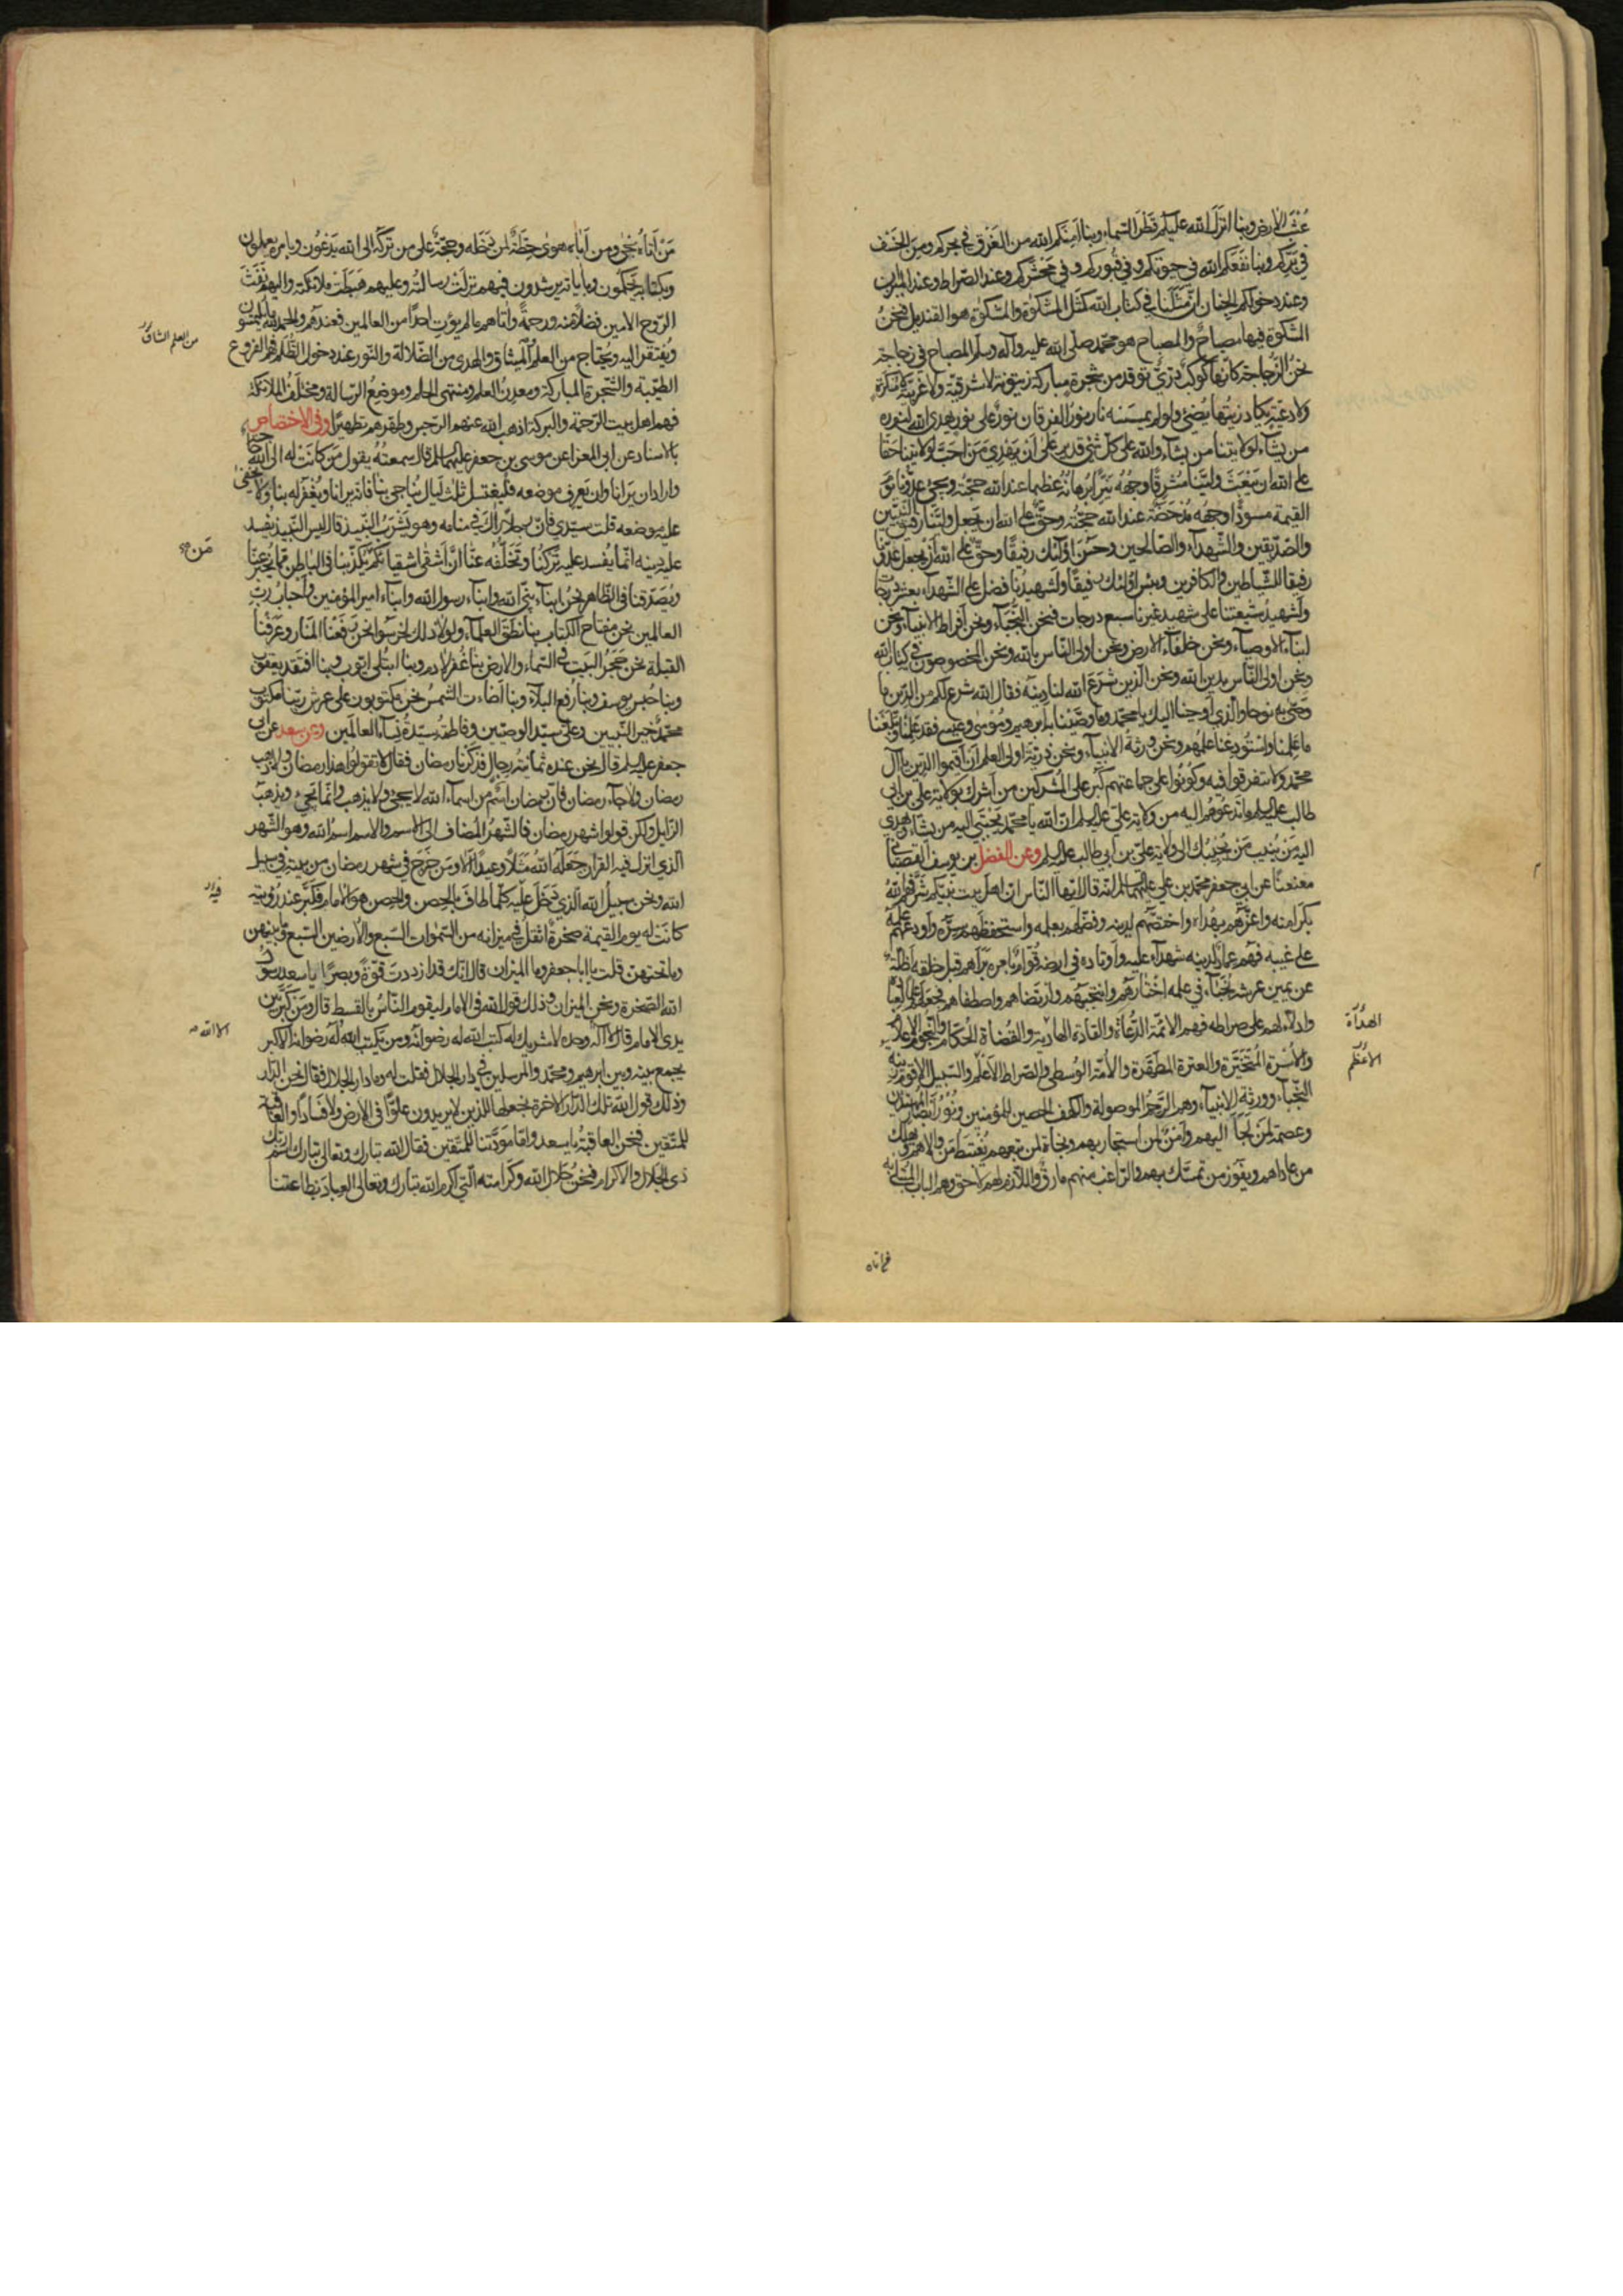 عُشْبَ الارض وبنا انزل الله عليكم قَطْرَ السّماء وبنا آمنكم الله من الغَرَق في بحركم ومن الخَسْف
في بَرِّكم وبنا نفعكم الله في حيوتكم وفي قبوركم وفي محشركم وعند الصّراط وعند الميزان
وعند دخولكم الجنان انّ مَثَلَنا في كتاب الله كمثل المشكوة والمشكوة هو القنديل فنحنُ
المشكوة فيها مصباحٌ والمصباح هو محمّد صلّى الله عليه وآله وسلم المصباح في زجاجة
نحنُ الزُّجاجة كانّها كوكبٌ دُرّيٌّ توقد من شجرة مباركة زيتونة لا شرقيّة ولا غربيّة لا مُنكَرة
ولا دعيّة يكاد زيتها يُضئ ولو لم تمسسه نار نورُ الفرقان نورٌ على نور يهدى الله لنوره
من يشآء لولايتنا من يشآء والله على كلّ شئ قدير على أن يَهْدِيَ مَن احبَّ لولايتنا حَقّا
على الله ان يَبْعَثَ وليّنا مُشرِقًا وجهُهُ نيّرًا برهانُهُ عظيما عند الله حجّتُه ويجئ عدوّنا يوم
القيمة مسودًّا وجهه مُدْحَضَةً عند الله حجّتُه وحقٌّ على الله ان يجعل وليَّنا رفيق النّبيّين
والصّدّيقين والشّهدآء والصّالحين وحَسُنَ اولئك رفيقًا وحقٌّ على الله أن يجعل عدوَّنا
رفيقا للشّياطين والكافرين وبئس اولئك رفيقًا ولشهيدُنا فضل على الشّهدآء بعشر درجات
ولشهيدُ شيعتنا على شهيد غيرنا سبع درجات فنحن النُّجَبآء ونحن أفراط الانبيآء ونحن
ابنآء الاوصيآء ونحن خلفآء الارض ونحن اولى النّاس بالله ونحن المخصوصون في كتاب الله
ونحن اولى النّاس بدين الله ونحن الّذين شَرَعَ الله لنا دينَه فقال الله شرع لكم من الدّين ما
وصّى به نوحا والّذي اوحينا اليك يا محمّد وما وصّيْنا به ابرهيم ومُوسى وعيسى فقد عَلِمْنا وبَلَّغْنا
ما عَلِمنا واسْتُودِعْنا علمهم ونحن ورثةُ الانبيآء ونحن ذريّة اولى العلم أنْ أقيموا الدّين يا آل
محمّد ولا تتفرقوا فيه وكُونُوا على جماعتهم كَبُر على المُشركين من أشرك بولاية علي بن أبى
طالب عليه السلم ما تدعُوهُم اليه من ولاية علىّ عليه السلم انّ الله يا محمّد يَجْتَبي اليه من يشآء ويَهْدي
اليه مَن يُنِيب مَن يُجِيبُك الى ولاية علىّ بن أبي طالب عليه السلم وعن الفضل بن يوسف القصباني
معنعنًا عن ابي جعفر محمّد بن علي عليهما السلم انّه قال ايّها النّاس انّ اهل بيت نبيّكم شَرَّفَهم الله
بكرامته واعزَّهم بهُداه واختصّهم لدينه وفضّلهم بعلمه واستحفظهم سِرَّه واودعهم علمَه
على غيبه فهُم عمادٌ لدينه شهدآء عليه وأوتاده في ارضه قُوّامٌ بامره برَأَهم قبل خلقه أظلّة
عن يمين عرشه نُجَبَاء في علمه اخْتَارَهُم وانتجبهم وارتضاهم واصطفاهم فجعلهم علماً لعباده
وادلّاء لهم على صراطه فهم الائمّة الدُّعاة والقادة الهادية والقُضاة الحُكّام والنّجوم الاعلام
والأسْرة المُتخَيَّرة والعترة المطهّرة والأمّة الوُسطى والصّراط الأعْلم والسّبيل الاقوم زينة
النّجبآء وورثة الانبيآء وهم الرَّحِمُ الموصولة والكهف الحصين للمؤمنين ونُوْرُ أبصار المهتدين
وعصمة لِمَن لَجَأ اليهم وأمْنٌ لمن استجار بهم ونجاة لمن تبعهم يُغْتَبَطُ مَن والاهم ويَهْلِك
من عاداهم ويفوز من تمسّك بهم والرّاغب عنهم مارقٌ واللّازم لهم لاحق وهم الباب المُبتلى به
الهداة
الاعظم
فمن اتاه
مَنْ أتاهُ نجى ومن أباه هوى حِطّةٌ لمن دخله وحجّةٌ على من تركه الى الله يَدْعُون وبامره يعملون
وبكتابه يَحكُمُون وبآياته يرشدون فيهم نزلَتْ رسالتُه وعليهم هَبَطَتْ ملائكته واليهم نَفَثَ
الرّوح الامين فضلًا منه ورحمةً وآتاهم ما لم يؤت احدًا من العالمين فعندهم والحمد لله ما يلتمسون
ويُفتقر اليه ويُحتاج من العلم الميثاق والهدى من الضّلالة والنّور عند دخول الظُّلَم فهم الفروع
الطيّبة والشّجرة المباركة ومعدِنُ العلم ومنتهى الحلم وموضعُ الرّسالة ومختلَفُ الملائكة
فهم اهل بيت الرّحمة والبركة اذهب الله عنهم الرّجس وطهّرهم تطهيرًا وفى الاختصاص
بالاسناد عن ابى المعزا عن موسى بن جعفر عليهما السلم قال سمعتُهُ يقول مَن كانَتْ له الى الله حاجة
واراد ان يَرانا وان يَعرف موضعه فليغتسل ثلث ليالٍ يُناجى بنا فانّه يرانا ويُغفَر له بنا ولا يخفى
عليه موضعه قلت سيّدى فانّ رجلا رآك فى منامه وهو يَشْرَبُ النّبيذ قال ليس النّبيذ يُفسد
عليه دينه انّما يُفسد عليه تَركُنا وتَخَلُّفُه عنّا انّ أشقى اشقيائكم يُكذّبنا فى الباطن ممّا يُخبَر عنّا
ويُصدّقنا فى الظّاهر نحنُ ابنآء نبيّ الله وابنآء رسول الله وابنآء امير المؤمنين وأحبابُ ربّ
العالمين نحن مفتاح الكتاب بنا نطق العلمآء ولولا ذلك لخرسوا نحن رفَعْنا المَنار وعَرّفْنا
القبلة نحن حَجَرُ البيت فى السّماء والارض بنا غُفِر لآدم وبنا ابتُلى ايّوب وبنا افتقد يعقوب
وبنا حُبس يوسف وبنا رُفع البلآء وبنا أضاءت الشّمسُ نحن مكتوبون على عرش ربّنا مكتوب
محمّدٌ خير النّبيين وعلىّ سيّد الوصيّين وفاطمة سيّدة نسآء العالمين وعن سعد عن أبى
جعفر عليه السلم قال نحن عنده ثمانية رجال فذكرنا رمضان فقال لا تقولوا هذا رمضان ولا ذهب
رمضان ولا جآء رمضان فانّ رمضان اسمٌ من اسمآء الله لا يجئ ولا يذهب وانّما يَجئ ويذهب
الزّايل ولكن قولوا شهر رمضان فالشّهرُ المُضاف الى الاسم والاسم اسمُ الله وهو الشّهر
الّذى انزل فيه القران جَعَلَه اللهُ مَثَلًا وعيدًا ألا ومَن خَرَجَ فى شهر رمضان من بيته فى سبيل
الله ونحن سبيلُ الله الّذى مَن دَخَلَ عليه كلّما طافَ بالحِصن والحِصن هو الامام فكبّر عند رؤيته
كانَتْ له يوم القيمة صخرةٌ اثقلُ فى ميزانه من السّموات السّبع والأرضين السّبع وما بينهن
وما تحتهنّ قلت يا ابا جعفر وما الميزان قال انّك قد ازددتَ قوّةً وبصرًا يا سعد رسول
الله الصّخرة ونحن الميزان وذلك قول الله فى الامام ليقوم النّاسُ بالقسط قال ومَن كبّر بين
يدى الامام قال لا اله وحده لا شريك له كتب الله له رضوانه ومن يكتب الله له رضوانه الاكبر
يجمع بينه وبين ابرهيم ومحمّد والمرسلين فى دار الجلال فقلت له وما دار الجلال فقال نحن الدّار
وذلك قول الله تلك الدّار الاخرة نجعلها للذين لا يريدون علوًّا فى الارض ولا فسادًا والعاقبة
للمتّقين فنحن العاقبة يا سعد وامّا مودّتنا للمتّقين فقال الله تبارك وتعالى تبارك اسم ربّك
ذى الجلال والاكرام فنحن جلال الله وكرامته الّتى اكرم الله تبارك وتعالى العباد بطاعتنا
من العلم
مَن
فيه
الا الله